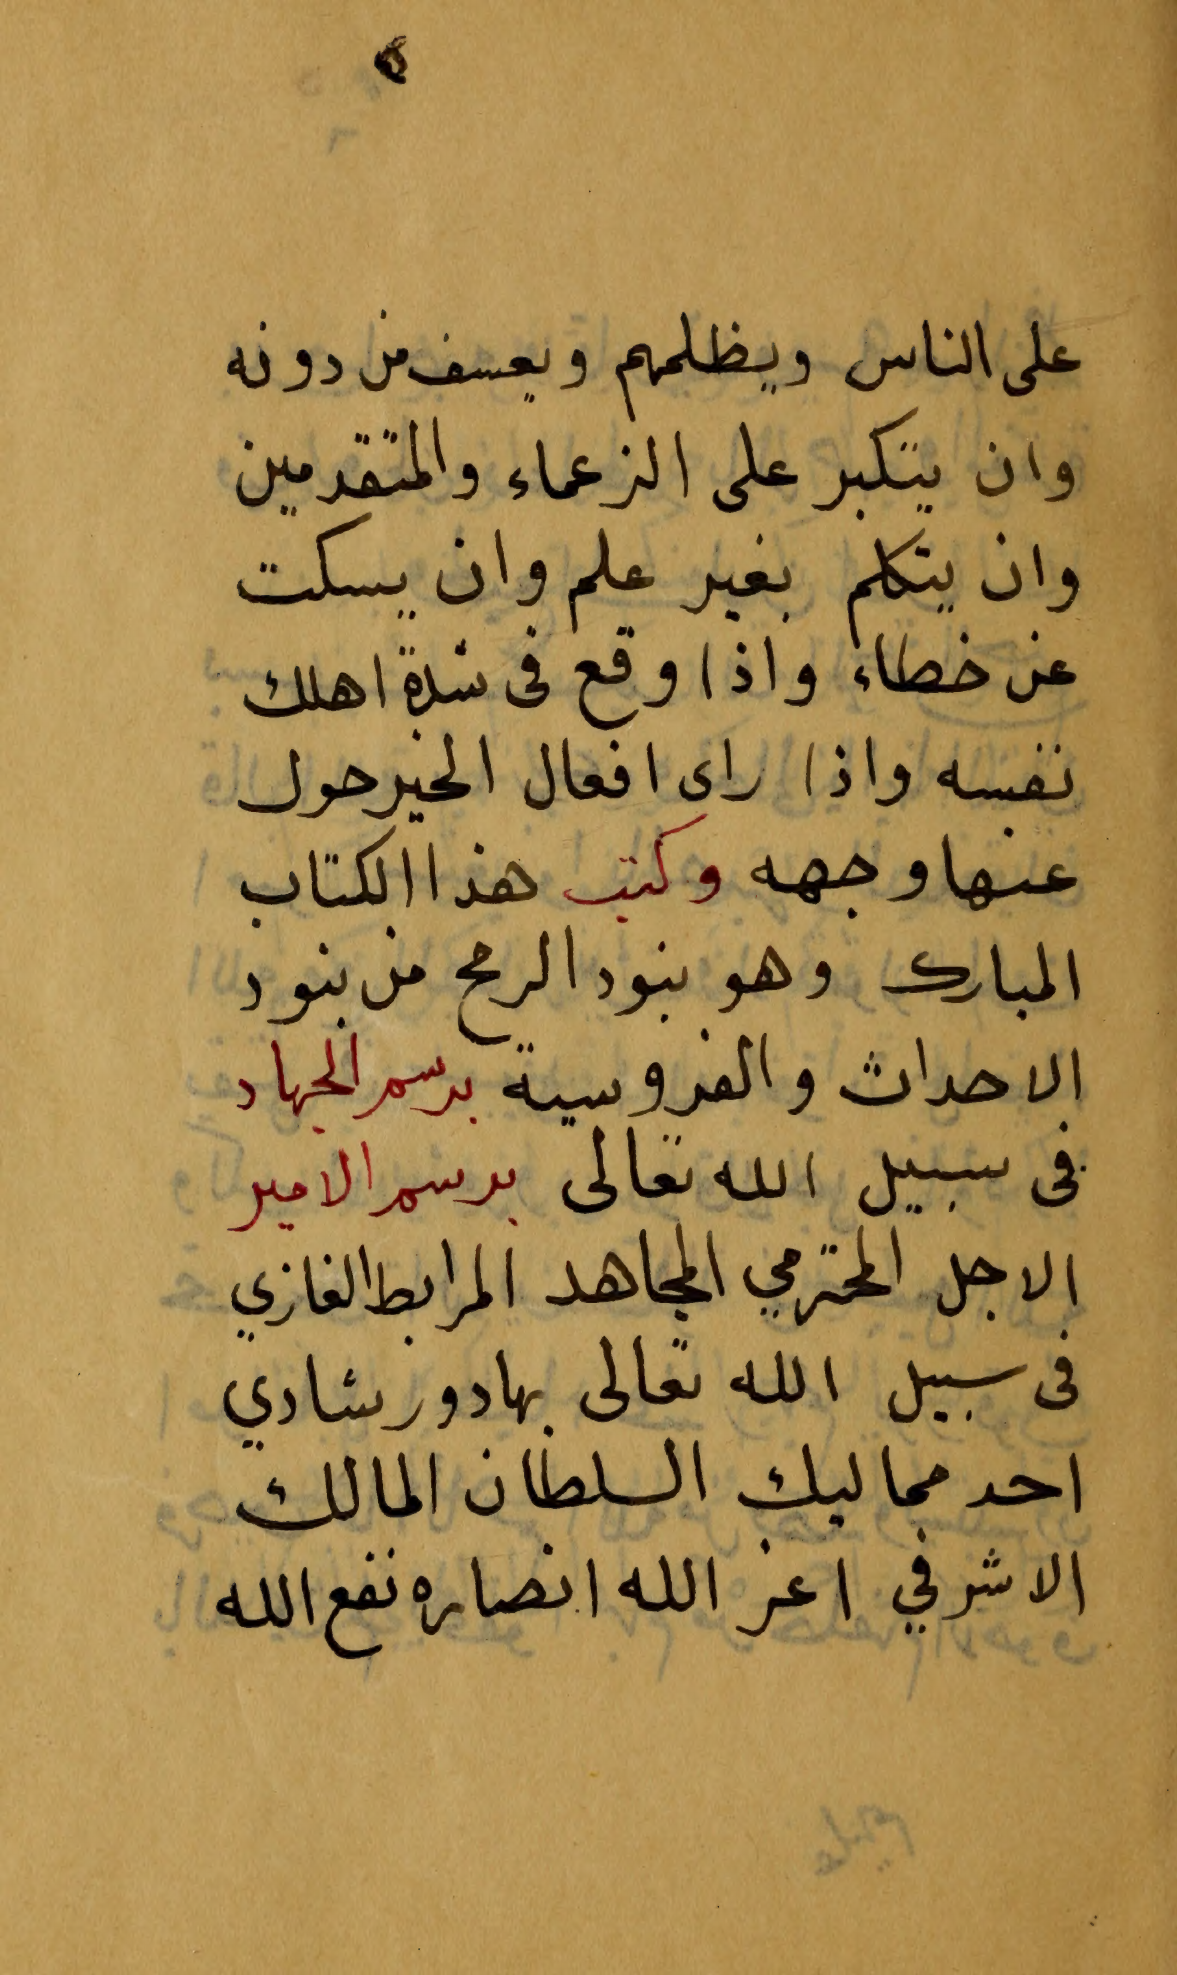 على الناس ويظلمهم ويعسف من دونه
وان يتكبر على الزعماء والمتقدمين
وان يتكلم بغير علم وان يسكت
عن خطاء واذا وقع فى شدة اهلك
نفسه واذا راى افعال الخير حول
عنها وجهه وكتب هذا الكتاب
المبارك وهو بنود الرمح من بنود
الاحداث والفروسية برسم الجهاد
فى سبيل الله تعالى برسم الامير
الاجل المحترمي المجاهد المرابط الغازي
فى سبيل الله تعالى بهادور شادي
احد مماليك السلطان المالك
الاشرفي اعز الله انصاره نفع الله